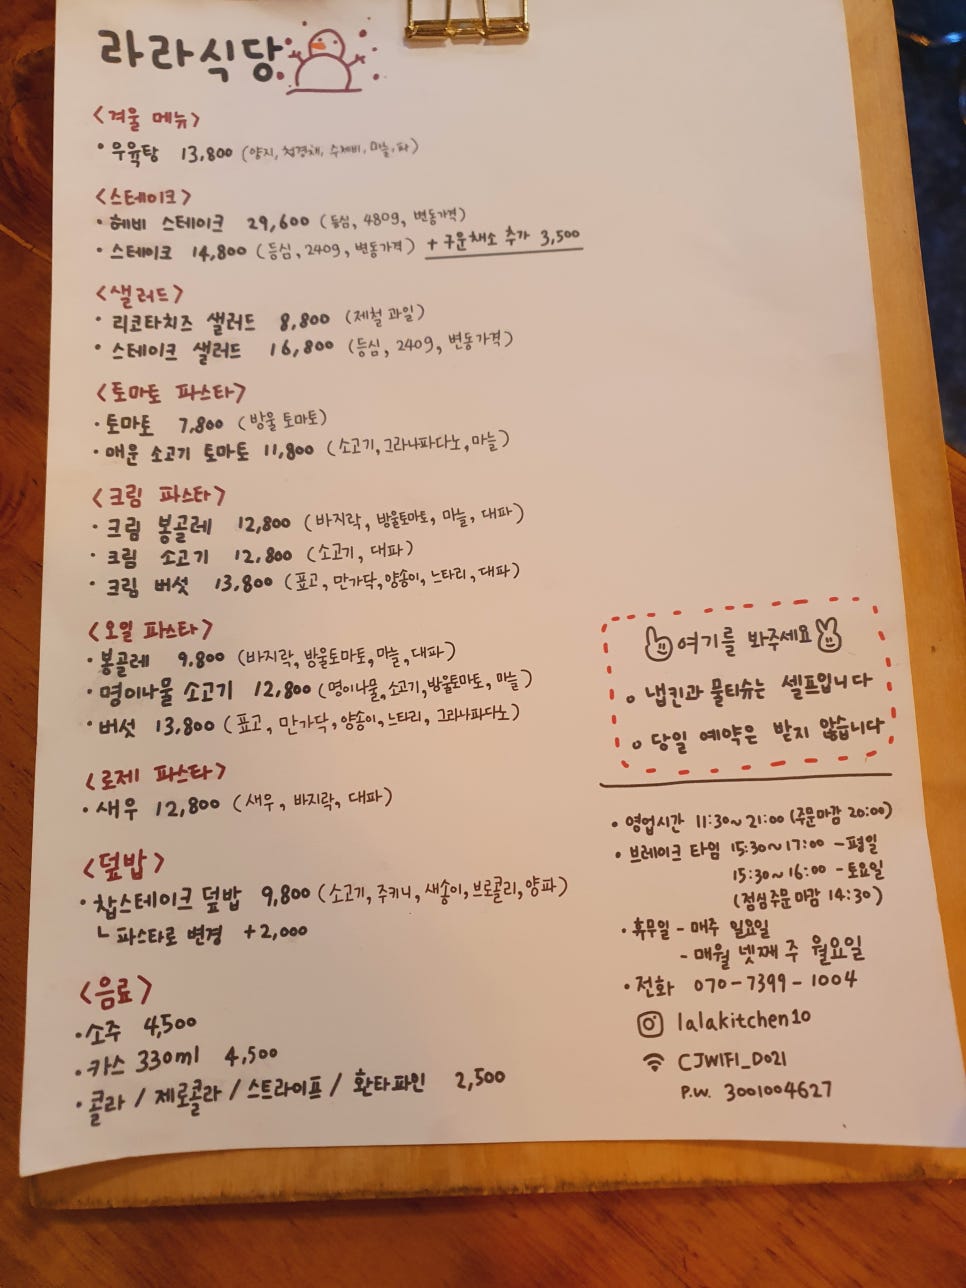 라라식당
<겨울 메뉴>
• 우육탕 13,800 (양지, 청경채, 수제비, 마늘, 파)
<스테이크>
• 헤비 스테이크 29,600 (등심, 480g, 변동가격)
• 스테이크 14,800 (등심, 240g, 변동가격) + 구운채소 추가 3,500
<샐러드>
• 리코타치즈 샐러드 8,800 (제철 과일)
• 스테이크 샐러드 16,800 (등심, 240g, 변동가격)
<토마토 파스타>
• 토마토 7,800 (방울 토마토)
• 매운 소고기 토마토 11,800 (소고기, 그라나파다노, 마늘)
<크림 파스타>
• 크림 봉골레 12,800 (바지락, 방울토마토, 마늘, 대파)
• 크림 소고기 12,800 (소고기, 대파)
• 크림 버섯 13,800 (표고, 만가닥, 양송이, 느타리, 대파)
<오일 파스타>
• 봉골레 9,800 (바지락, 방울토마토, 마늘, 대파)
• 명이나물 소고기 12,800 (명이나물, 소고기, 방울토마토, 마늘)
• 버섯 13,800 (표고, 만가닥, 양송이, 느타리, 그라나파다노)
<로제 파스타>
• 새우 12,800 (새우, 바지락, 대파)
<덮밥>
• 찹스테이크 덮밥 9,800 (소고기, 주키니, 새송이, 브로콜리, 양파)
└ 파스타로 변경 +2,000
<음료>
• 소주 4,500
• 카스 330ml 4,500
• 콜라 / 제로콜라 / 스트라이프 / 환타파인 2,500
여기를 봐주세요
o 냅킨과 물티슈는 셀프입니다
o 당일 예약은 받지 않습니다
• 영업시간 11:30~21:00 (주문마감 20:00)
• 브레이크 타임 15:30~17:00 - 평일
15:30~16:00 - 토요일
(점심주문마감 14:30)
• 휴무일 - 매주 일요일
- 매월 넷째 주 월요일
• 전화 070-7399-1004
lalakitchen10
CJWIFI_D021
P.W. 3001004627